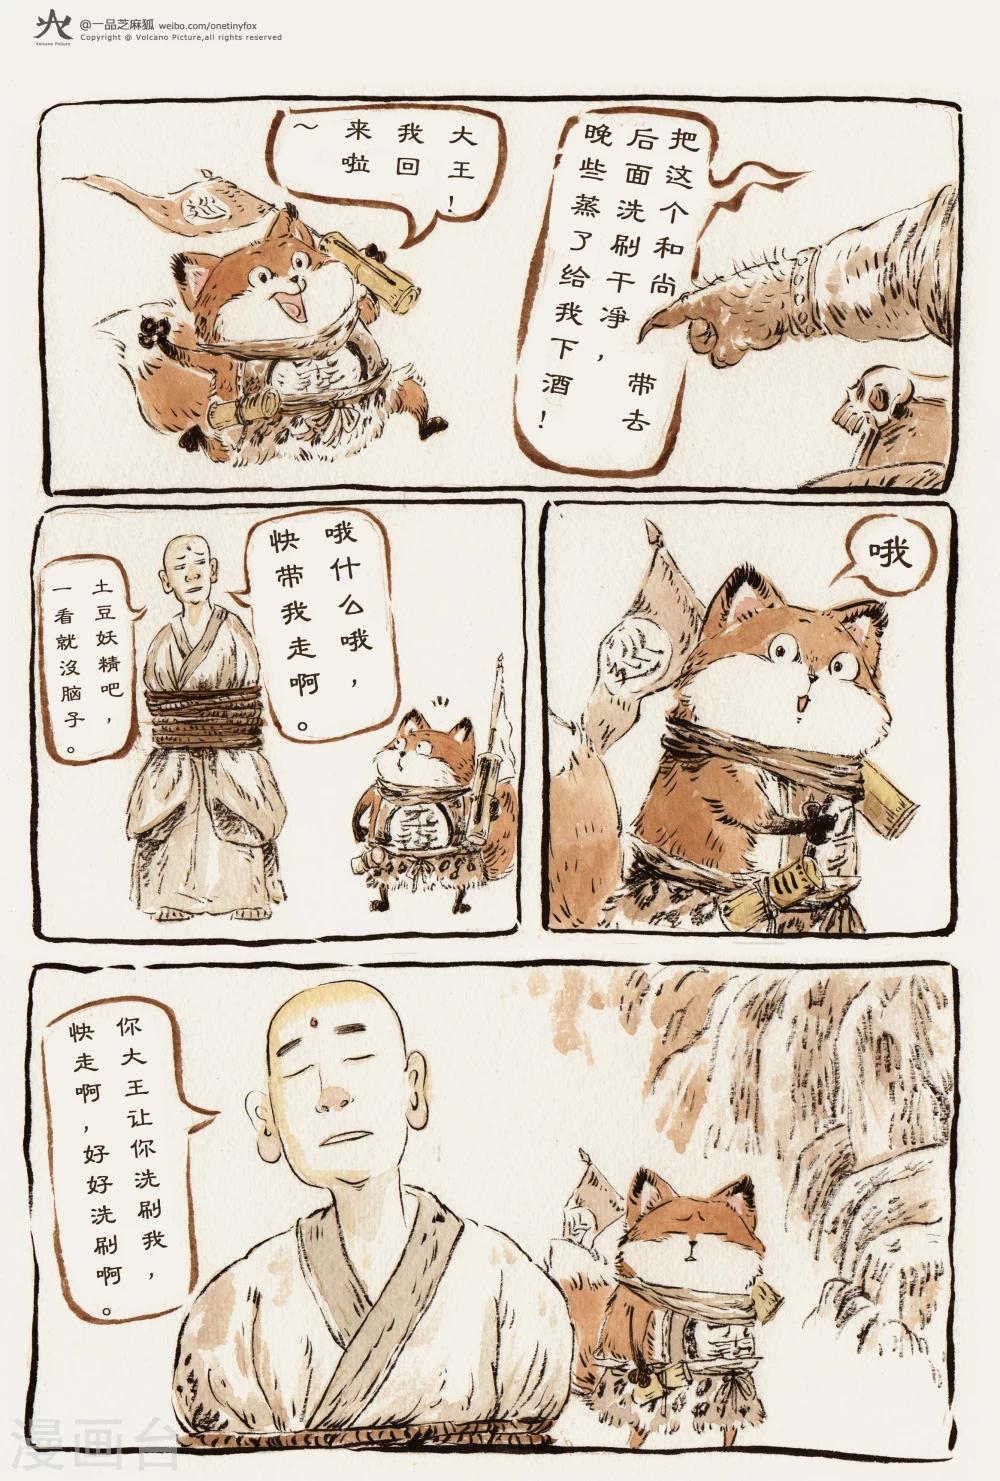 @一品芝麻狐 weibo.com/onetinyfox
Copyright @ Volcano Picture,all rights reserved
Volcano Picture
大王!
我回
来啦
~
巡
把这个和尚带去
后面洗刷干净，
晚些蒸了给我下酒!
哦什么哦，
快带我走啊。
土豆妖精吧，
一看就沒脑子。
哦
你大王让你洗刷我，
快走啊，好好洗刷啊。
漫画台